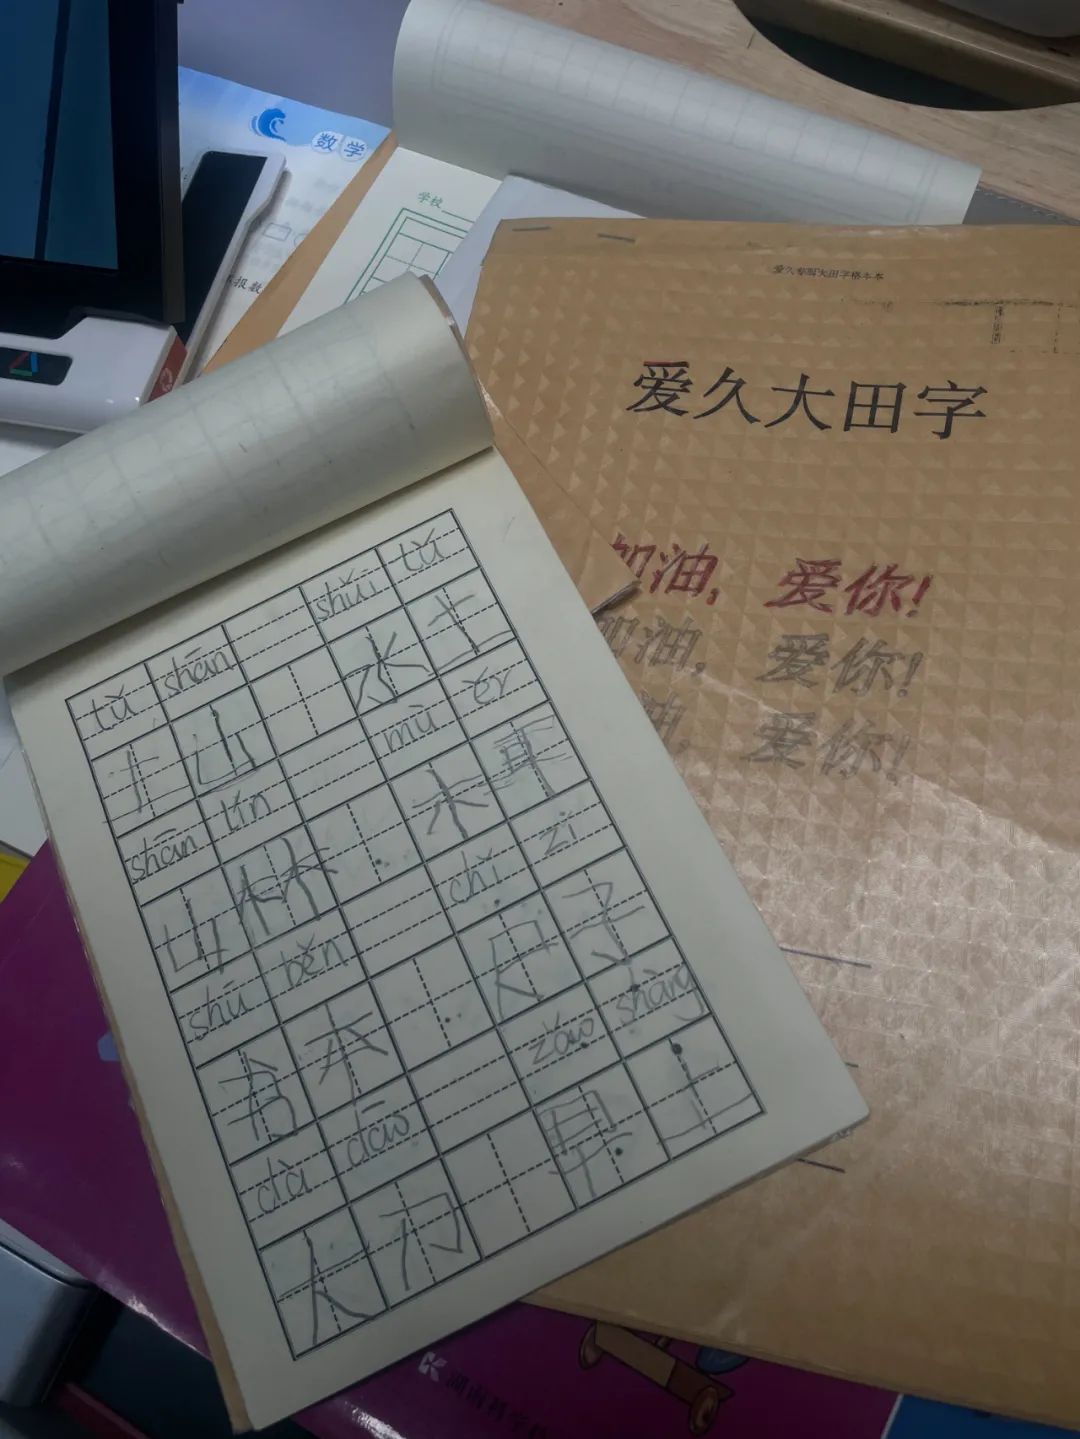 数学
学校
爱久专用大田字格本本
爱久大田字
加油，爱你！
加油，爱你！
油，爱你！
tǔ shān shuǐ tǔ
土 山 水 土
shān lín mù ěr
山 林 木 耳
shū běn chǐ zi
本 尺 子
dà dāo zǎo shàng
大 刀 早 上